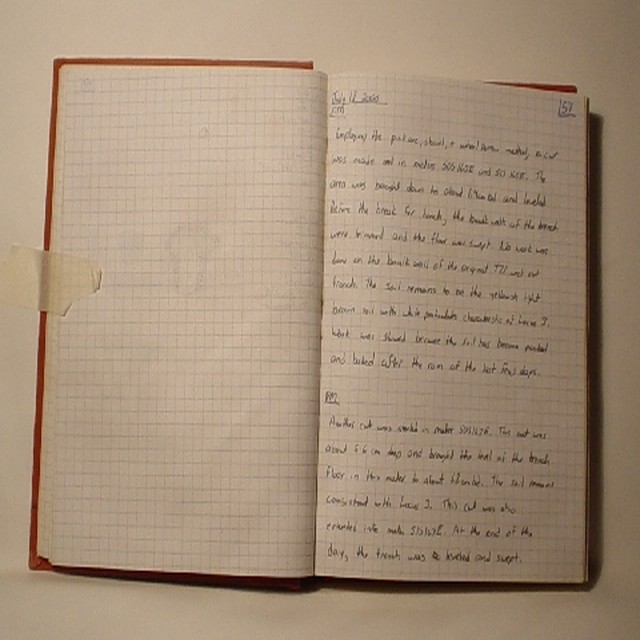 July 12 2000
AM
57
Employing the pickaxe, shovel, + wheelbarrow method, a cut
was made in meters S0S/162E and S0 163E. The
area was brought down to about and leveled
Before the break for lunch, the baulk walls of the trench
were trimmed and the floor was swept. No work was
done on the baulk wall of the original T21 west
trench. The soil remains to be the yellowish light
brown soil with white particulates characteristic of Locus 3.
Work was slowed because the soil has become packed
and baked after the rain of the last few days.
PM
Another cut was started in meter This cut was
about 5-6 cm deep and brought the level of the trench
floor in this meter to about The soil remains
consistent with Locus 3. This cut was also
extended into meter At the end of the
day, the trench was leveled and swept.